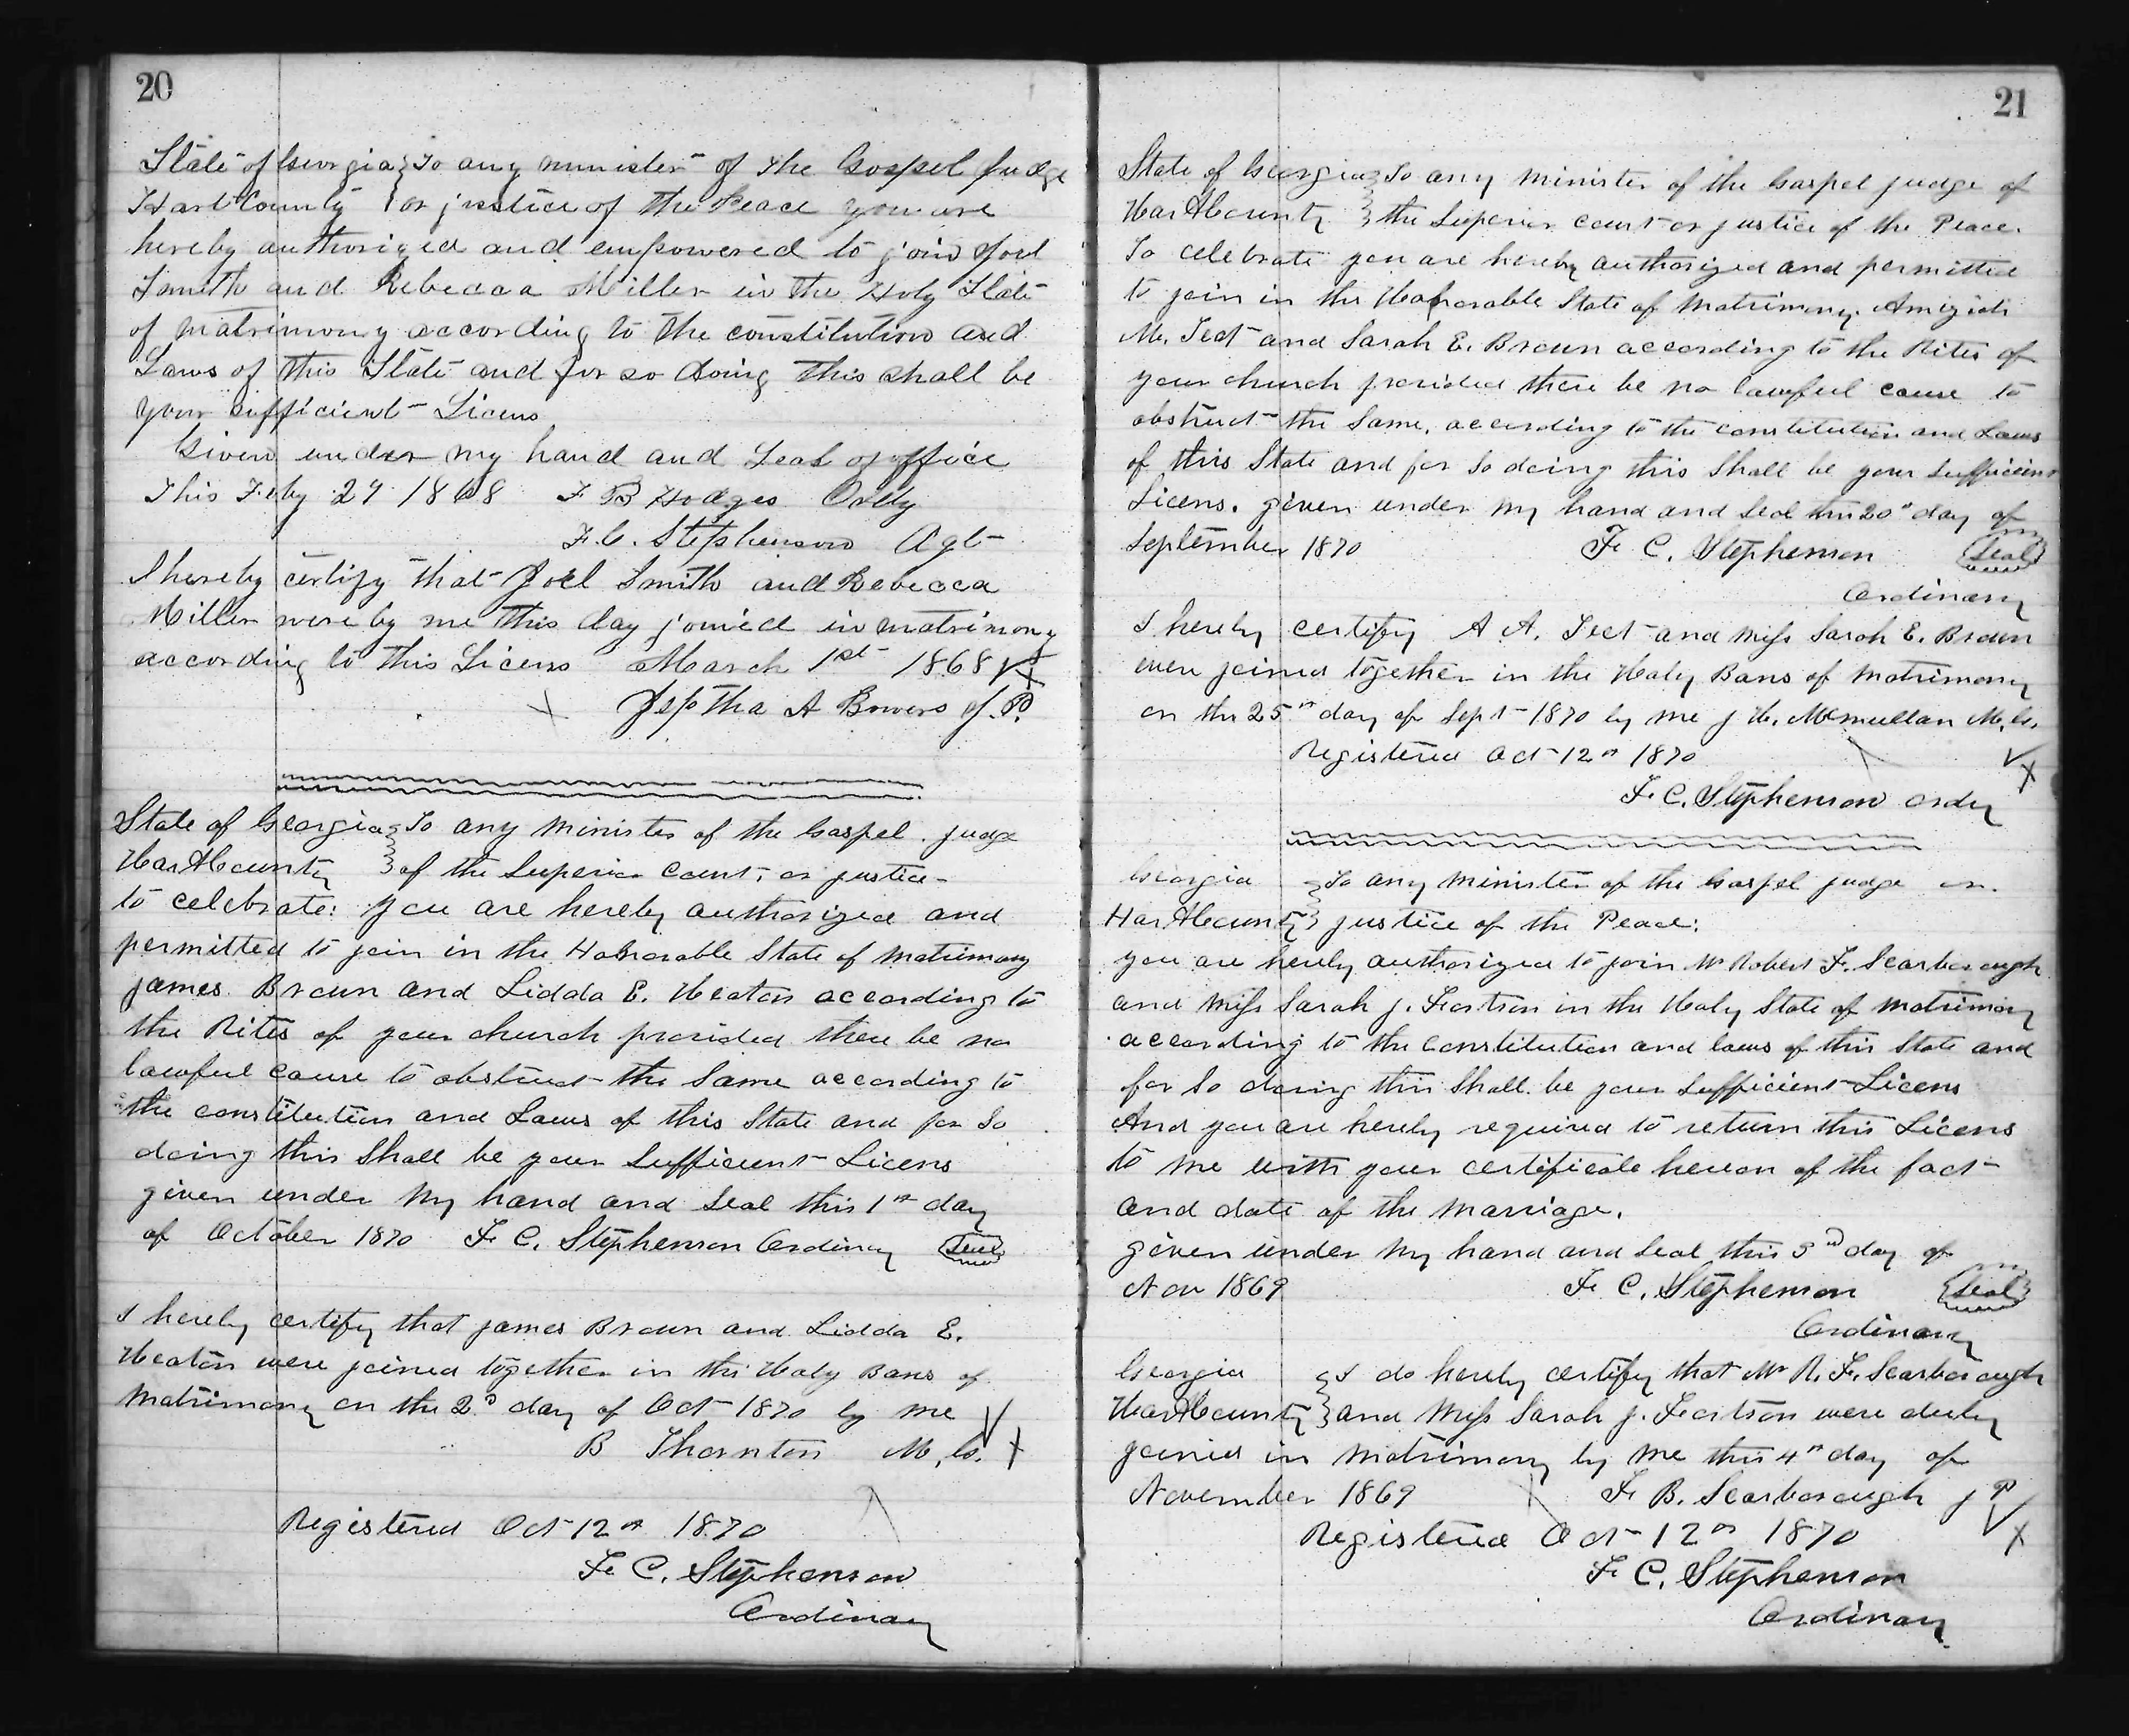 20
State of Georgia } To any minister of the Gospel Judge
Hart County } or justice of the Peace you are
hereby authorized and empowered to join Joel
Smith and Rebecca Miller in the Holy State
of matrimony according to the constitution and
Laws of this State and for so doing this shall be
your sufficient Licens
Given under my hand and Seal of office
This Feby 29 1868 F. B Hodges Ordy
F. C. Stephenson Agt
I hereby certify that Joel Smith and Rebecca
Miller were by me this day joined in matrimony
according to this Licens March 1st 1868
Jeptha A Bowers J. P.
State of Georgia } To any minister of the Gospel judge
Hart County } of the Superior Court, or justice
to celebrate: you are hereby authorized and
permitted to join in the Honorable State of matrimony
James Brown and Lidda E. Heaton according to
the Rites of your church provided there be no
lawful cause to obstruct the Same according to
the constitution and Laws of this State and for So
doing this Shall be your Sufficient Licens
given under my hand and Seal this 1st day
of October 1870 F. C. Stephenson Ordinary Seal
I hereby certify that James Brown and Lidda E.
Heaton were joined together in the Holy Bans of
Matrimony on the 2d day of Oct 1870 by me
B Thornton M, G.
Registered Oct 12th 1870
F. C. Stephenson
Ordinary
21
State of Georgia } To any minister of the Gospel judge of
Hart County } the Superior court or justice of the Peace.
To celebrate you are hereby authorized and permitted
to join in the Honorable State of Matrimony.
M. Teet and Sarah E. Brown according to the Rites of
your church provided there be no lawful cause to
obstruct the Same, according to the constitution and Laws
of this State and for So doing this Shall be your Sufficient
Licens. given under my hand and Seal this 20th day of
September 1870 F. C. Stephenson Seal
Ordinary
I hereby certify A A. Teet and Miss Sarah E. Brown
were joined together in the Holy Bans of Matrimony
on the 25th day of Sept 1870 by me J H. McMullan M, G.
Registered Oct 12th 1870
F. C. Stephenson Ordy
Georgia } To any minister of the Gospel judge or
Hart County } justice of the Peace:
you are hereby authorized to join Mr Robert F. Scarborough
and Miss Sarah J. Fortson in the Holy State of matrimony
according to the Constitution and laws of this State and
for So doing this Shall be your Sufficient Licens
And you are hereby required to return this Licens
to me with your certificate hereon of the fact
and date of the marriage.
given under my hand and Seal this 3rd day of
Nov 1869 F. C. Stephenson Seal
Ordinary
Georgia } I do hereby certify that Mr R. F. Scarborough
Hart County } and Miss Sarah J. Fortson were duly
joined in matrimony by me this 4th day of
November 1869 F. B. Scarborough J P
Registered Oct 12th 1870
F. C. Stephenson
Ordinary